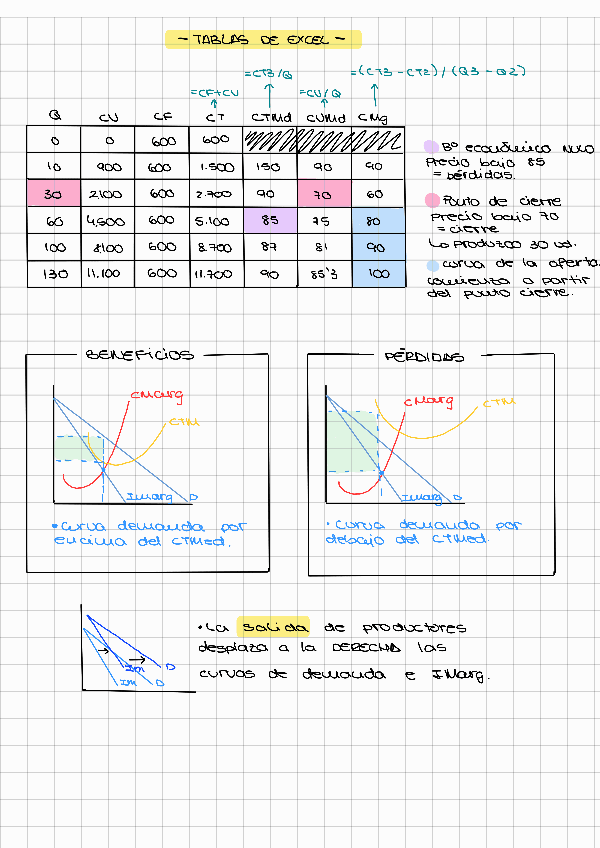 - TABLAS DE EXCEL -
=CT3/Q =(CT3-CT2)/(Q3-Q2)
=CF+CV =CV/Q
Q CV CF CT CTMd CVMd CMg
0 0 600 600
10 900 600 1.500 150 90 90
30 2.100 600 2.700 90 70 60
60 4.500 600 5.100 85 75 80
100 8.100 600 8.700 87 81 90
130 11.100 600 11.700 90 85'3 100
Bº económico nulo
Precio bajo 85
= pérdidas.
Punto de cierre
Precio bajo 70
= cierre
↳ Produzco 30 ud.
curva de la oferta.
comienza a partir
del punto cierre.
BENEFICIOS
CMarg
CTM
IMarg D
• Curva demanda por
encima del CTMed.
PÉRDIDAS
CMarg
CTM
IMarg D
• Curva demanda por
debajo del CTMed.
Im D
Im D
• La salida de productores
desplaza a la DERECHA las
curvas de demanda e IMarg.